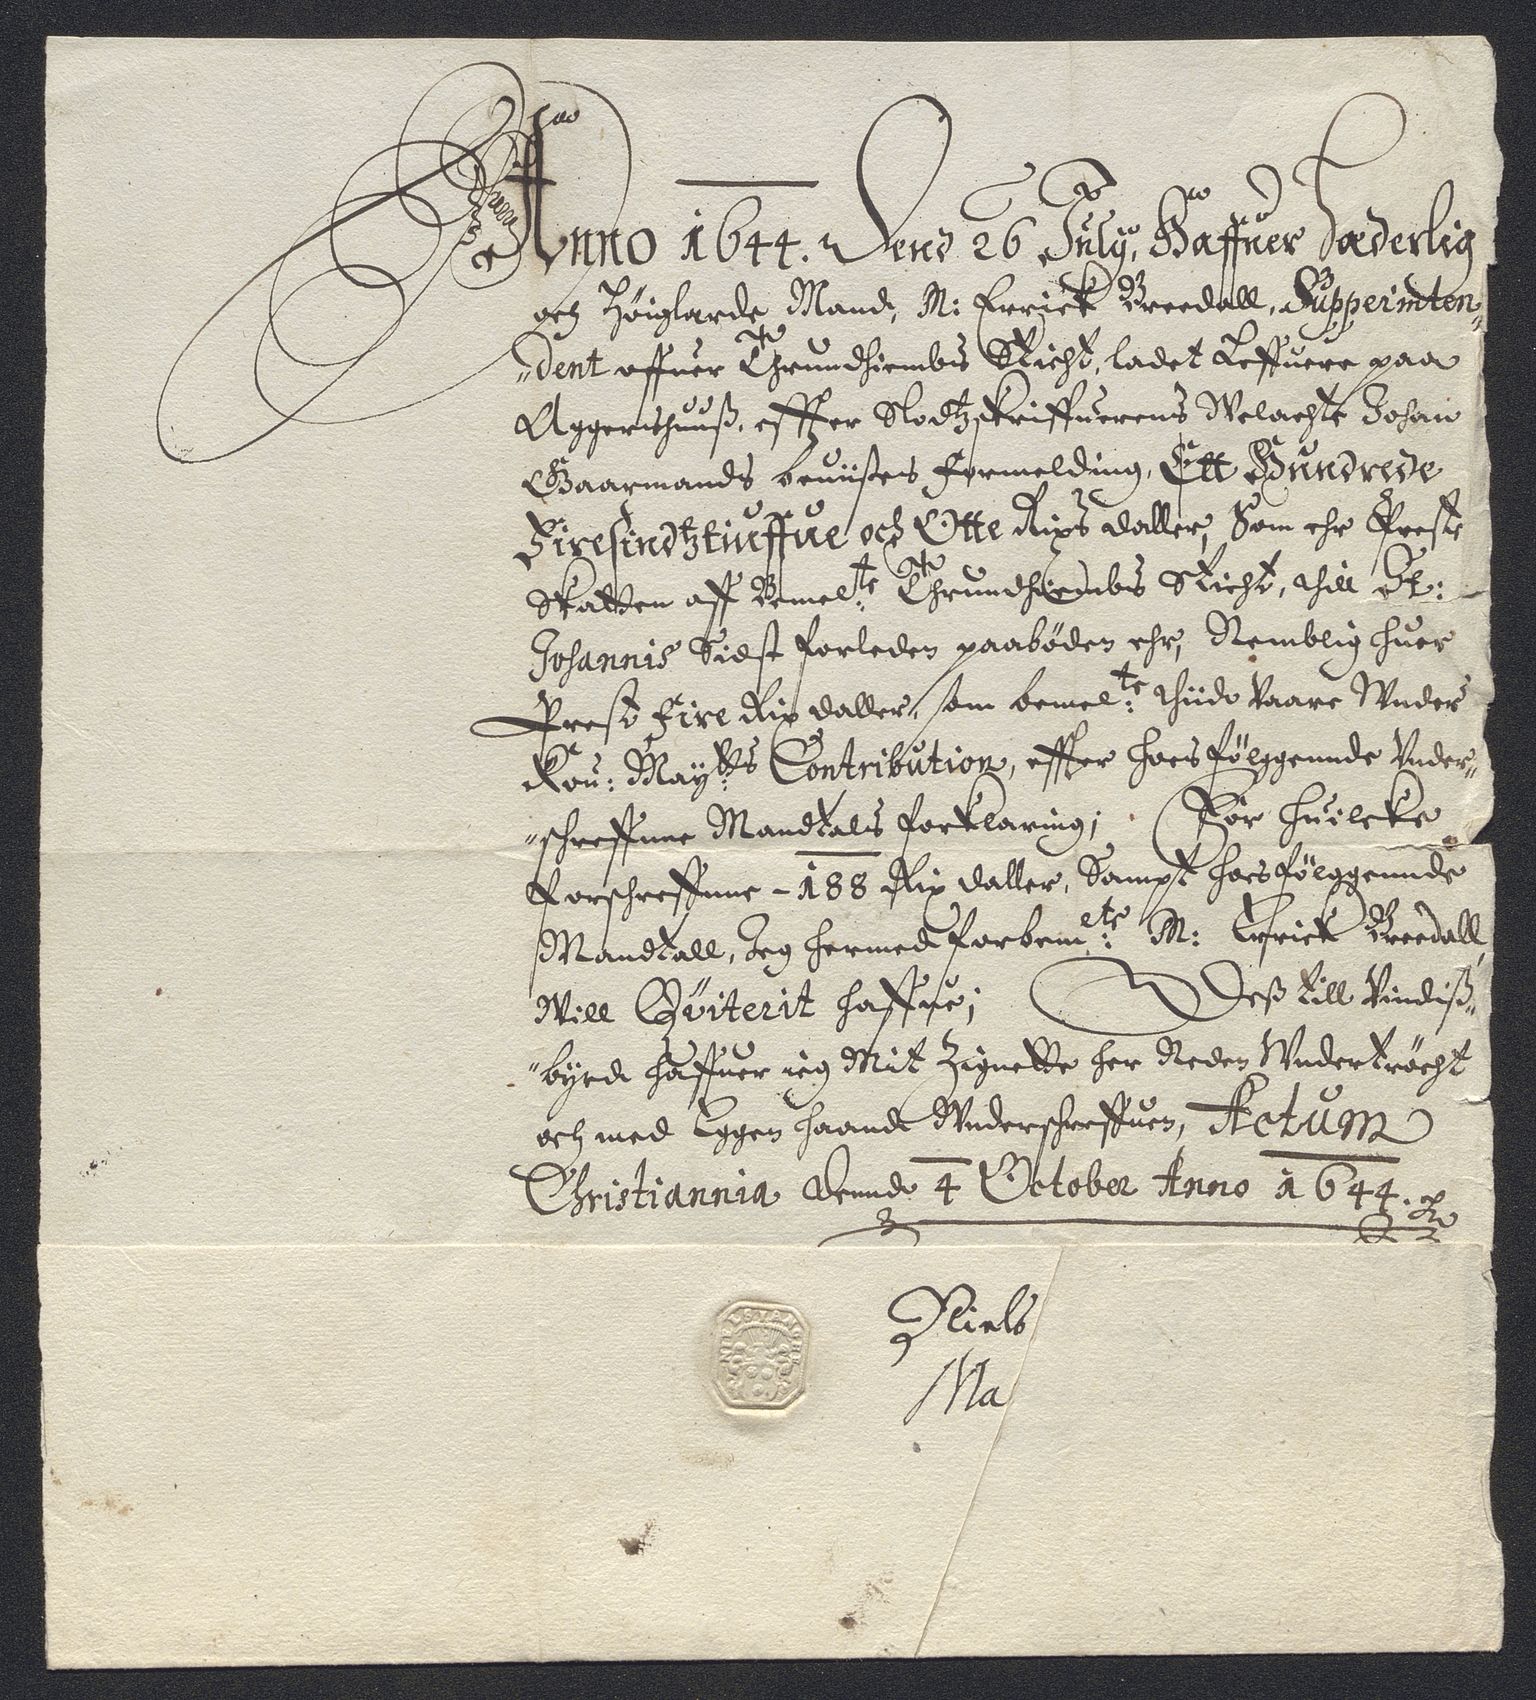 Anno 1644. Dend 26 July, Haffuer Hæderlig
och Høiglærde Mand, M: Errick Breedall, Supperinten¬
"dent offuer Thrundhiembs Sticht, ladet Leffuere paa
Aggershuuß, effter Slodtzskriffuerens Welachte Johan
Gaarmands beuiißes formelding, Ett Hundrede
Firesindtztiuffue och Otte Rixs daller, Som ehr Preste
Skatten aff Bemelte: Thrundhiembs Sticht, thill St:
Johannis Sidst forleden paabøden ehr, Nemblig huer
Prest Fire Rix daller, som bemelte: thiide Vaare Wnder
Kon: Maytts Contribution, effter hoes følggennde Vnder¬
"schreffune Mandtals forklaring; For huilcke
forschreffune - 188 Rix daller, Sampt hoes følggennde
Mandtall, Jeg hermed forbemelte: M: Errick Breedall
Will Qviterit haffue; Deß till Vindiß¬
"byrd haffuer ieg Mit Zignette her Neden Wndertrøcht
och med Eggen haand Wnderschreffuen, Actum
Christiannia dennd 4 October Anno 1644.
Niels
Ma